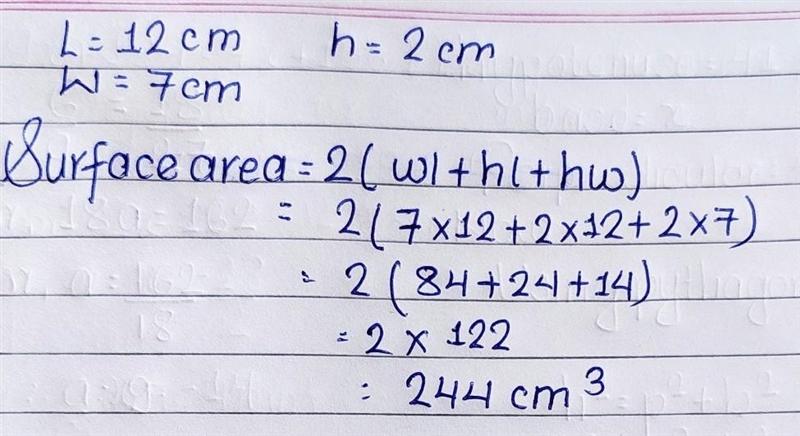 L = 12 cm h = 2 cm
W = 7 cm
Surface area = 2( wl + hl + hw)
= 2( 7 × 12 + 2 × 12 + 2 × 7)
= 2 ( 84 + 24 + 14)
= 2 × 122
= 244 cm³